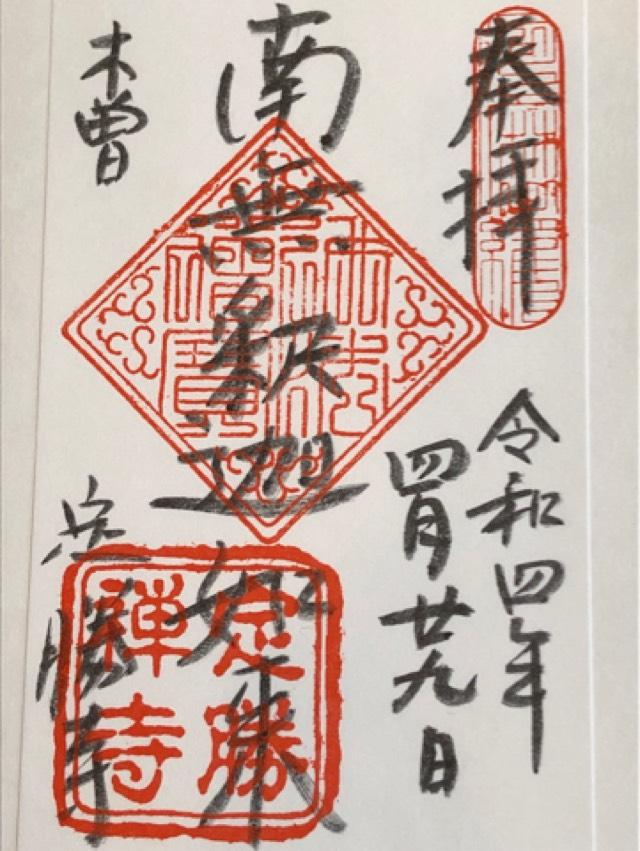 奉拝
令和四年
四月廿九日
南無釈迦如来
木曽
定勝寺
佛法僧寶
定勝
禅寺